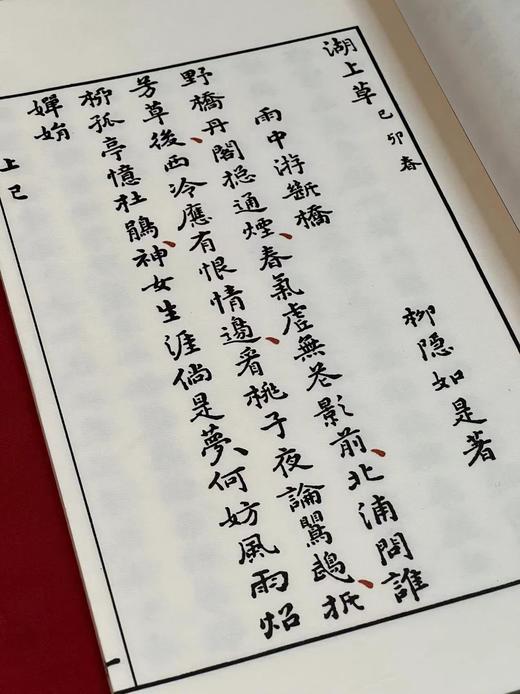 湖上草 己卯春
柳隱如是著
雨中游斷橋
野橋丹閣捴通煙、春氣虛無花影前、北浦問誰
芳草後西冷應有恨情邊、看桃子夜論鸎鵡、折
柳孤亭憶杜鵑、神女生涯倘是夢、何妨風雨炤
嬋娟
上巳
一